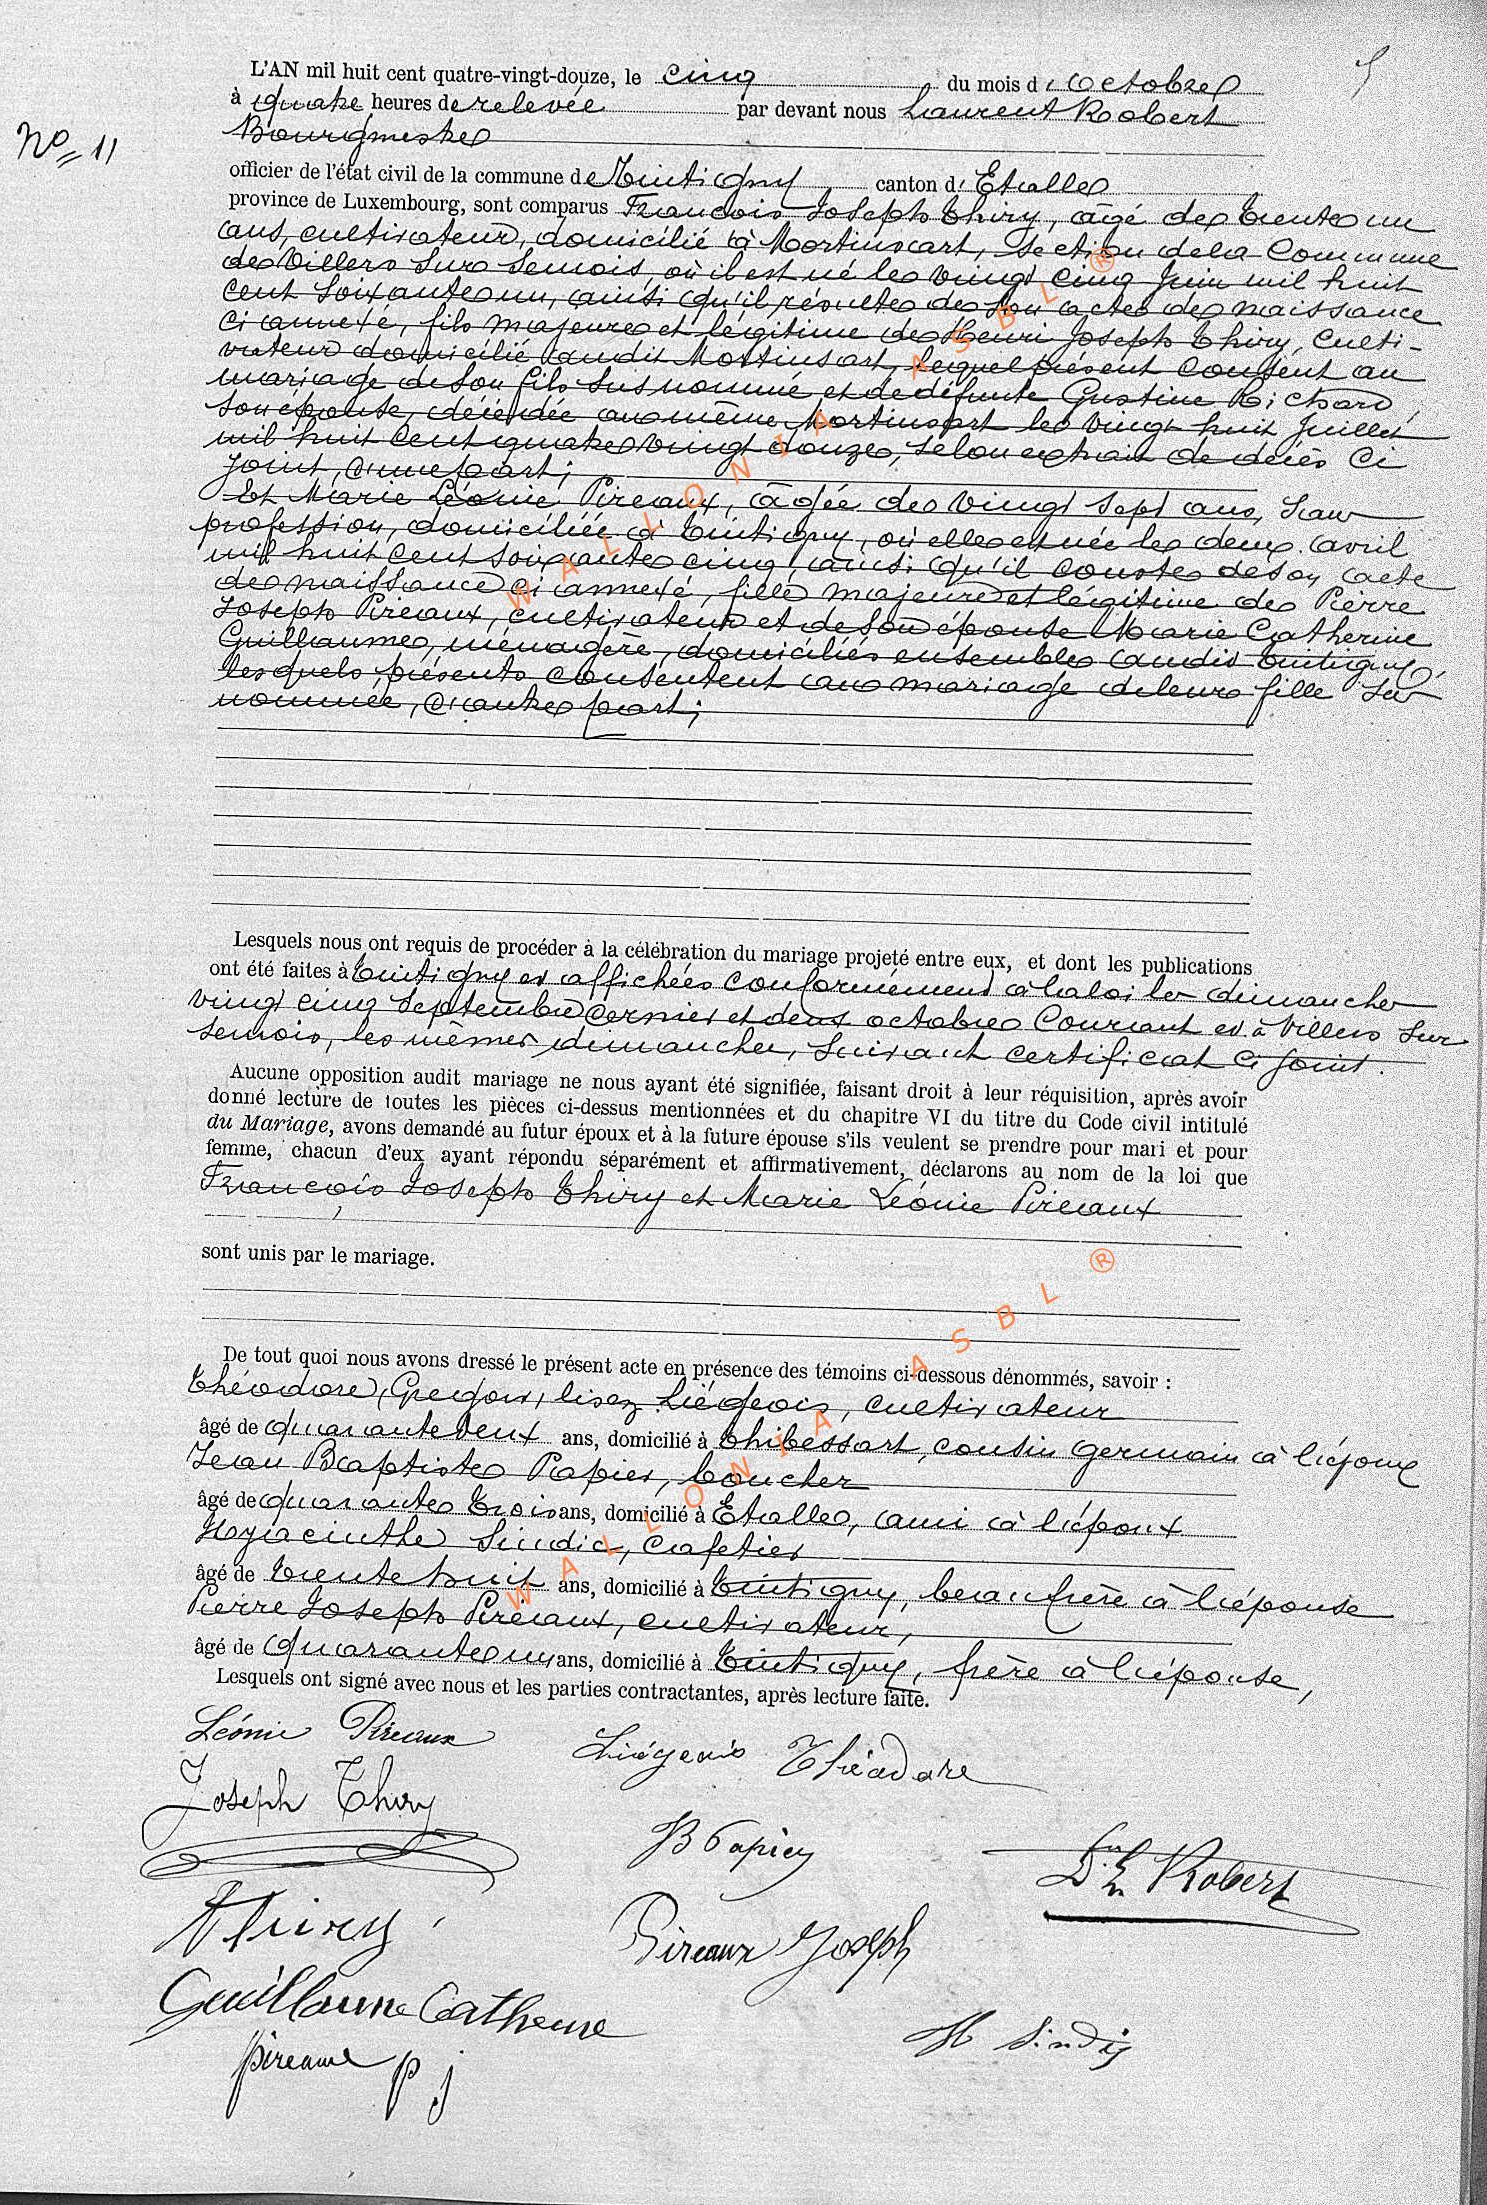 L'AN mil huit cent quatre-vingt-douze, le cinq du mois d'Octobre
à quatre heures de relevée par devant nous Laurent Robert
Nº 11
Bourgmestre
officier de l'état civil de la commune de Tintigny canton d'Etalle
province de Luxembourg, sont comparus François Joseph Thiry, âgé de trente un
ans, cultivateur, domicilié à Mortinsart, section de la Commune
de Villers sur Semois, où il est né le vingt cinq Juin mil huit
cent soixante un, ainsi qu'il résulte de son acte de naissance
ci annexé, fils majeur et légitime de Henri Joseph Thiry, culti-
vateur domicilié audit Mortinsart, lequel présent consent au
mariage de son fils susnommé et de défunte Gustine Richard,
son épouse, décédée au même Mortinsart le vingt huit Juillet
mil huit cent quatre vingt douze, selon extrait de décès ci
joint, d'une part;
Et Marie Léonie Pireaux, âgée de vingt sept ans, sans
profession, domiciliée à Tintigny, où elle est née le deux avril
mil huit cent soixante cinq, ainsi qu'il conste de son acte
de naissance ci annexé, fille majeure et légitime de Pierre
Joseph Pireaux, cultivateur et de son épouse Marie Catherine
Guillaume, ménagère, domiciliés ensemble audit Tintigny,
lesquels présents consentent au mariage de leur fille sus
nommée, d'autre part;
Lesquels nous ont requis de procéder à la célébration du mariage projeté entre eux, et dont les publications
ont été faites à Tintigny et affichées conformément à la loi les dimanches
vingt cinq Septembre dernier et deux octobre courant et à Villers sur
semois, les mêmes dimanches, suivant certificat ci joint.
Aucune opposition audit mariage ne nous ayant été signifiée, faisant droit à leur réquisition, après avoir
donné lecture de toutes les pièces ci-dessus mentionnées et du chapitre VI du titre du Code civil intitulé
du Mariage, avons demandé au futur époux et à la future épouse s'ils veulent se prendre pour mari et pour
femme, chacun d'eux ayant répondu séparément et affirmativement, déclarons au nom de la loi que
François Joseph Thiry et Marie Léonie Pireaux
sont unis par le mariage.
De tout quoi nous avons dressé le présent acte en présence des témoins ci-dessous dénommés, savoir :
Théodore, Gregoir, lisez Liégeois, cultivateur
âgé de quarante deux ans, domicilié à Thibessart, cousin germain à l'époux
Jean Baptiste Papier, boucher
âgé de quarante trois ans, domicilié à Etalle, ami à l'époux
Hyacinthe Sindic, cafetier
âgé de trente huit ans, domicilié à Tintigny, beau frère à l'épouse
Pierre Joseph Pireaux, cultivateur,
âgé de quarante un ans, domicilié à Tintigny, frère à l'épouse,
Lesquels ont signé avec nous et les parties contractantes, après lecture faite.
Léonie Pireaux
Liégeois Théodore
Joseph Thiry
JB Papier
Robert
Thiry
Pireaux Joseph
Guillaume Catherine
H Sindic
pireaux p j
WALLONIA ASBL ®
WALLONIA ASBL ®